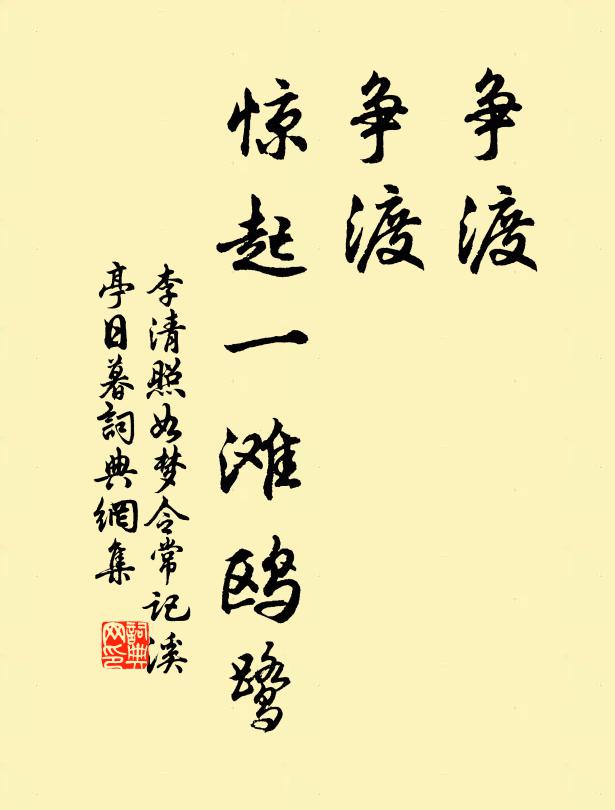 争渡
争渡
惊起一滩鸥鹭
李清照如梦令常记溪
亭日暮詞典網集
詞典
网印